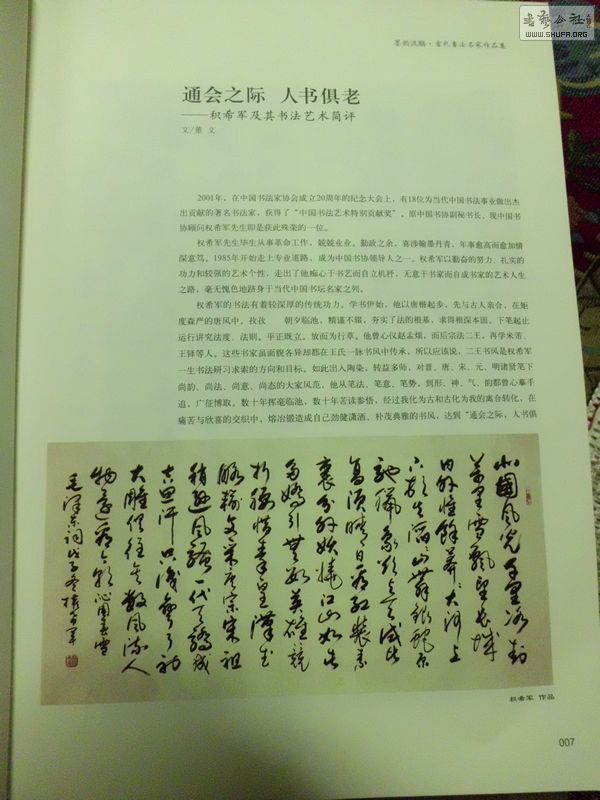 书艺公社
WWW.SHUFA.ORG
墨韵流觞·当代书法名家作品集
通会之际 人书俱老
——积希军及其书法艺术简评
文/董 文
2001年，在中国书法家协会成立20周年的纪念大会上，有18位为当代中国书法事业做出杰
出贡献的著名书法家，获得了“中国书法艺术特别贡献奖”。原中国书协副秘书长、现中国书
协顾问权希军先生即是获此殊荣的一位。
权希军先生毕生从事革命工作，兢兢业业。勤政之余，喜涉翰墨丹青，年事愈高而愈加情
深意笃。1985年开始走上专业道路，成为中国书协领导人之一。权希军以勤奋的努力、扎实的
功力和较强的艺术个性，走出了他痴心于书艺而自立机杼，无意于书家而自成书家的艺术人生
之路，毫无愧色地跻身于当代中国书坛名家之列。
权希军的书法有着较深厚的传统功力。学书伊始，他以唐楷起步，先与古人亲合，在矩
度森严的唐风中，孜孜 朝夕临池，精谨不辍，夯实了法的根基，求得根深本固。下笔起止
运行讲究法度、法则，平正既立，放而为行草。他曾心仪赵孟頫，而后宗法二王，再学米芾、
王铎等人。这些书家虽面貌各异却都在王氏一脉书风中传承，所以应该说，二王书风是权希军
一生书法研习求索的方向和目标。如此出入陶染，转益多师，对晋、唐、宋、元、明诸贤笔下
尚韵、尚法、尚意、尚态的大家风范，他从笔法、笔意、笔势，到形、神、气、韵都曾心摹手
追，广征博取。数十年挥毫临池，数十年苦读参悟，经过我化为古和古化为我的离合转化，在
痛苦与欣喜的交织中，熔冶锻造成自己劲健潇洒、朴茂典雅的书风，达到“通会之际，人书俱
北國风光千里冰封
万里雪飘望长城
内外惟餘莽莽大河上
下顿失滔滔山舞银蛇原
驰蜡象欲与天公试比
高须晴日看红装素
裹分外妖娆江山如此
多娇引無数英雄竞
折腰惜秦皇漢武
略输文采唐宗宋祖
稍逊风骚一代天骄成
吉思汗只识弯弓射
大雕俱往矣数风流人
物还看今朝 沁园春雪
毛泽东词戊子冬权希军
权希军 作品
007